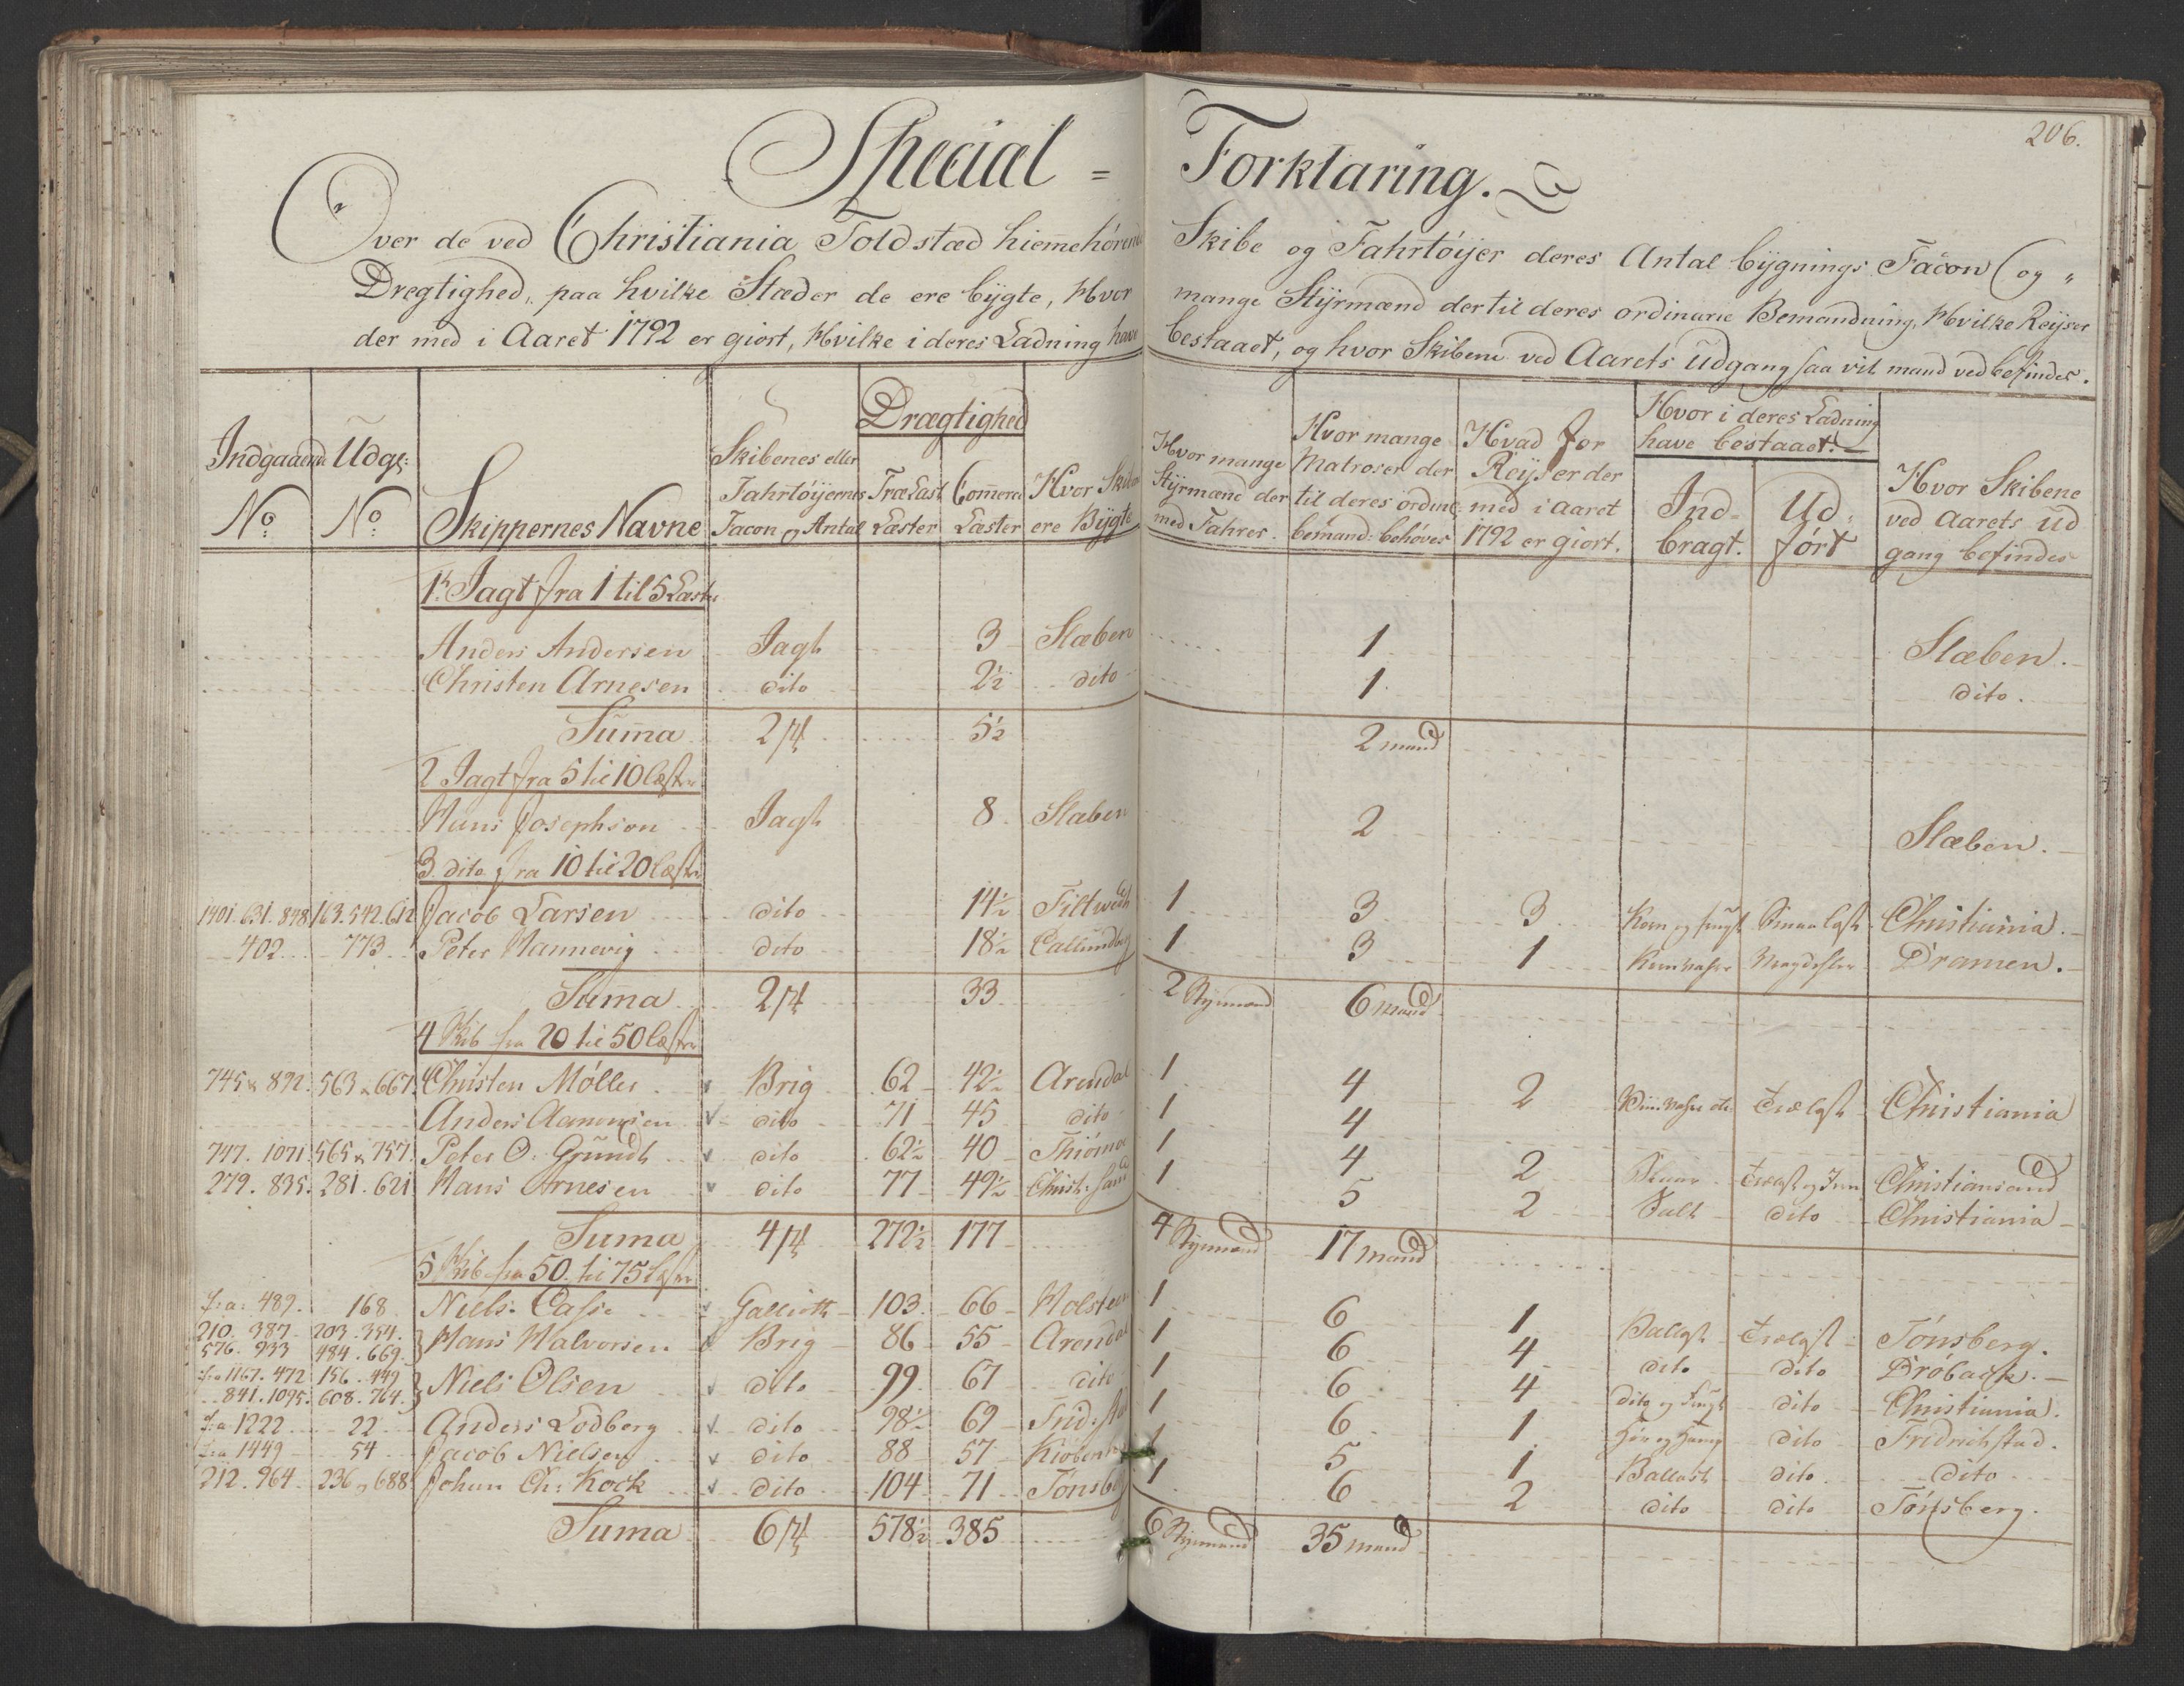 206.
Special = Forklaring.
Over de ved Christiania Toldstæd hiemehörende Skibe og Fahrtöijer deres Antal bijgnings Facon (og
Drægtighed, paa hvilke Stæder de ere bijgte, Hvor mange Stijrmænd der til deres ordinaire Bemandning, Hvilke Reijser
der med i Aaret 1792 er giort, Hvilke i deres Ladning have bestaaet, og hvor Skibene ved Aarets Udgang saa vit mand ved befindes.
Indgaaende No.
Udg: No.
Skippernes Navne
Skibenes eller Fahrtöijernes Facon og Antal
Drægtighed
TræLast Læster
Comerce Læster
Hvor Skibene ere Bijgte
Hvor mange Stijrmænd der med Fahrer.
Hvor mange Matroser der til deres ordine bemand: behöves
Hvad for Reijser der med i Aaret 1792 er giort.
Hvor i deres Ladning have bestaaet.
Ind-bragt.
Ud-fört
Hvor Skibene ved Aarets Udgang befindes
1. Jagt fra 1 til 5 Læster
Anders Andersen Jagt 3 Slæben 1 Slæben.
Christen Arnesen dito 2½ dito 1 dito.
Suma 2 5½ 2 mand
2 Jagt fra 5 til 10 læster
Hans Josephson Jagt 8 Slæben 2 Slæben.
3 dito fra 10 til 20 læster
1401. 631. 848 163. 542. 612 Jacob Larsen dito 14½ 1 3 3 Korn og Christiania.
402 773 Peter Hannevig dito 18½ Callundborg 1 3 1 Dramen.
Suma 2 33 2 Stijrmænd 6 mand
4 Skib fra 20 til 50 læster
745 & 892. 563 & 667. Christen Möller Brig 62 42½ Arendal 1 4 2 Trælast Christiania
Anders dito 71 45 dito 1 4
747. 1071 565 & 757. Peter O. Grundt dito 62½ 40 Thiöme 1 4 2 Trælast og Christiansand
279. 835. 281. 621 Hans Arnesen dito 77 49½ Christ: sand 1 5 2 Salt dito Christiania
Suma 4 272½ 177 4 Stijrmænd 17 mand
5 Skib fra 50 til 75 læster
f: a: 489. 168 Niels Gallioth 103 66 Holsteen 1 6 1 Ballast Trælast Tönsberg.
210. 387. 576. 933 203. 354. 484. 669. Hans Halvorsen Brig 86 55 Arendal 1 6 4 dito dito Dröback.
f: a 1167. 472 841. 1095. 156. 449 608. 764. Niels Olsen dito 99 67 dito 1 6 4 dito og dito Christiania.
f: a 1222 22 Anders Lodberg dito 98½ 69 1 6 1 dito Fridrichstad.
f: a 1449 54 Jacob Nielsen dito 88 57 Kiöbenh 1 5 1 Ballast dito dito
212. 964. 236, 688 Johan Ch: Kock dito 104 71 Tönsberg 1 6 2 dito dito Tönsberg.
Suma 6 578½ 385 6 Stijrmænd 35 mand